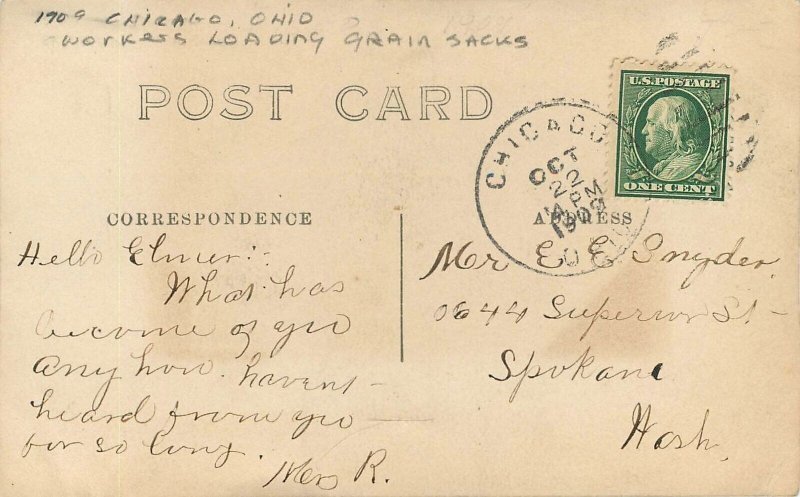 1909 CHICAGO, OHIO
WORKERS LOADING GRAIN SACKS
POST CARD
U.S. POSTAGE
ONE CENT
CHICAGO
OCT
22
PM
1909
CORRESPONDENCE
ADDRESS
Hello Elmer:-
What has
become of you
anyhow. havent
heard from you
for so long.
Mrs R.
Mr E E Snyder
0644 Superior St-
Spokane
Wash,